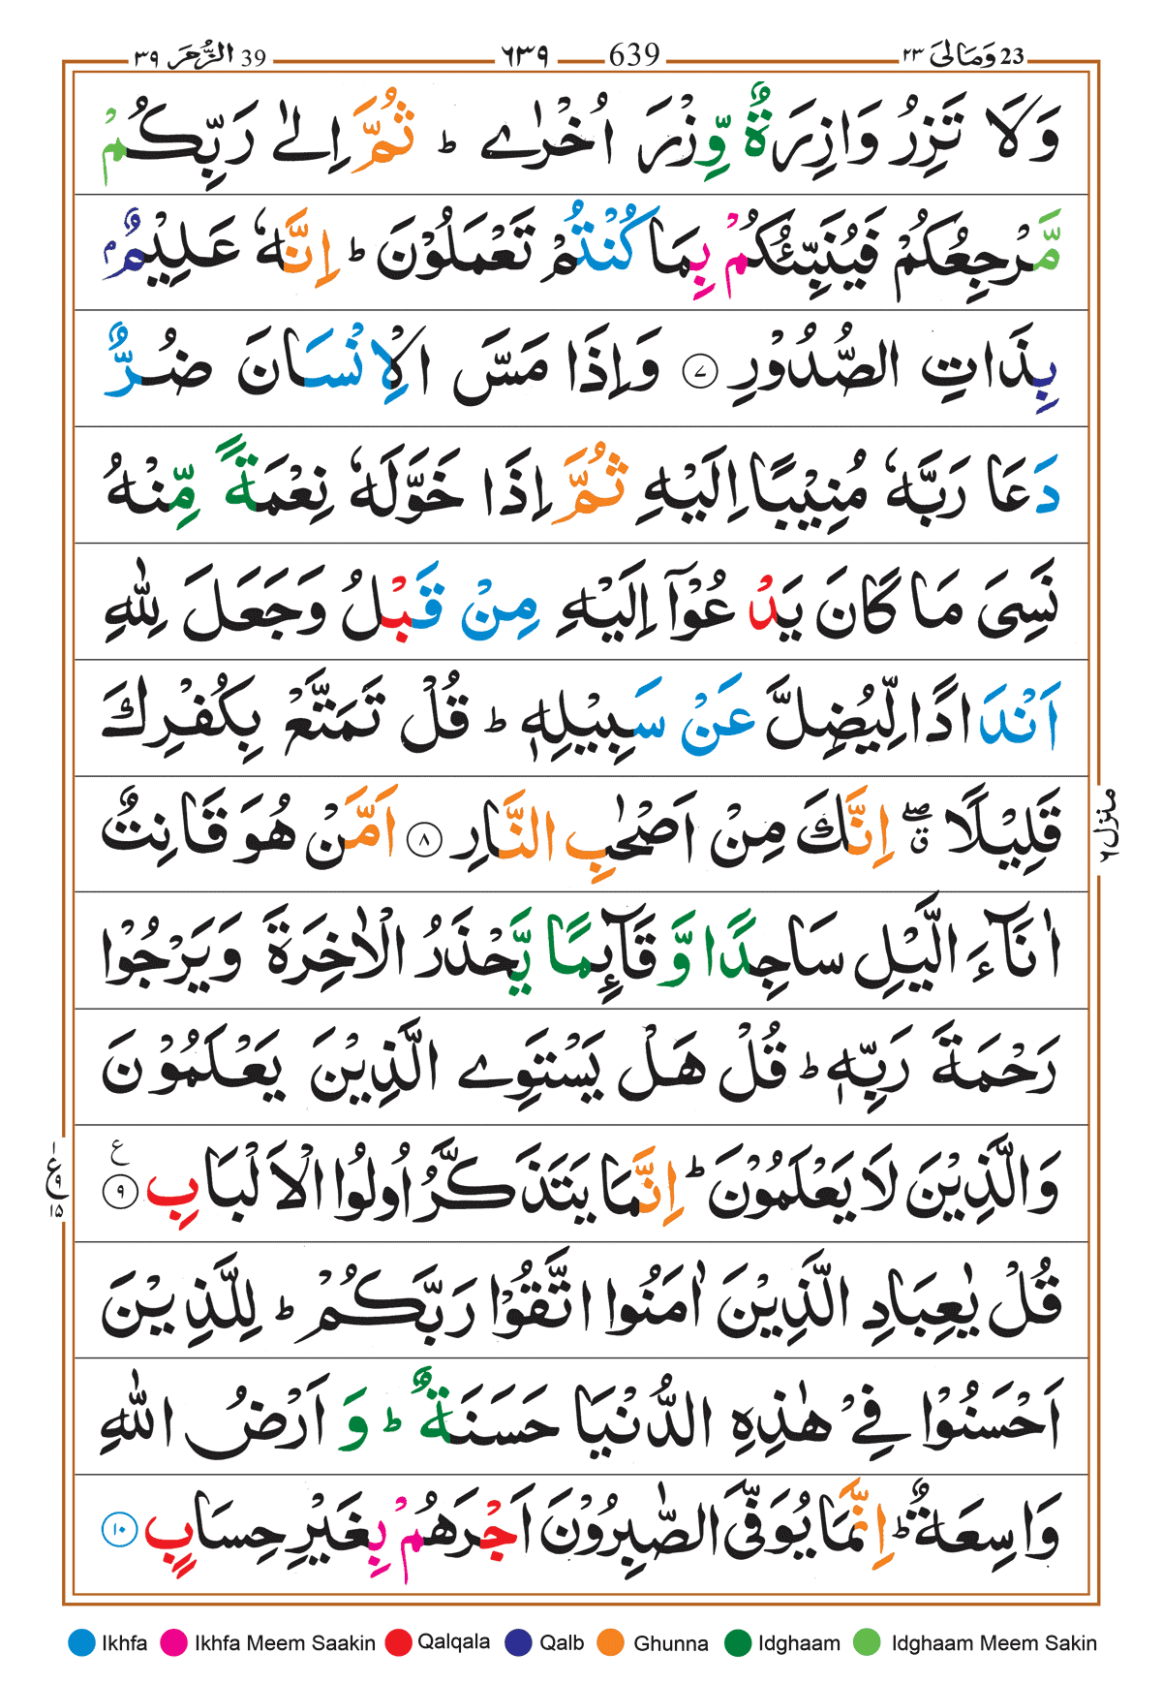 39 الزُّمَر ٣٩ ٦٣٩ 639 23 وَمَالِىَ ٢٣
وَلَا تَزِرُ وَازِرَةٌ وِّزْرَ اُخْرٰى ؕ ثُمَّ اِلٰى رَبِّكُمْ
مَّرْجِعُكُمْ فَيُنَبِّئُكُمْ بِمَا كُنْتُمْ تَعْمَلُوْنَ ؕ اِنَّهٗ عَلِيْمٌۢ
بِذَاتِ الصُّدُوْرِ ٧ وَاِذَا مَسَّ الْاِنْسَانَ ضُرٌّ
دَعَا رَبَّهٗ مُنِيْبًا اِلَيْهِ ثُمَّ اِذَا خَوَّلَهٗ نِعْمَةً مِّنْهُ
نَسِىَ مَا كَانَ يَدْعُوْٓا اِلَيْهِ مِنْ قَبْلُ وَجَعَلَ لِلّٰهِ
اَنْدَادًا لِّيُضِلَّ عَنْ سَبِيْلِهٖ ؕ قُلْ تَمَتَّعْ بِكُفْرِكَ
قَلِيْلًا ۖ ق اِنَّكَ مِنْ اَصْحٰبِ النَّارِ ٨ اَمَّنْ هُوَ قَانِتٌ
اٰنَآءَ الَّيْلِ سَاجِدًا وَّ قَآئِمًا يَّحْذَرُ الْاٰخِرَةَ وَيَرْجُوْا
رَحْمَةَ رَبِّهٖ ؕ قُلْ هَلْ يَسْتَوِى الَّذِيْنَ يَعْلَمُوْنَ
وَالَّذِيْنَ لَا يَعْلَمُوْنَ ؕ اِنَّمَا يَتَذَكَّرُ اُولُوا الْاَلْبَابِ ٩ ع
قُلْ يٰعِبَادِ الَّذِيْنَ اٰمَنُوا اتَّقُوْا رَبَّكُمْ ؕ لِلَّذِيْنَ
اَحْسَنُوْا فِىْ هٰذِهِ الدُّنْيَا حَسَنَةٌ ؕ وَ اَرْضُ اللّٰهِ
وَاسِعَةٌ ؕ اِنَّمَا يُوَفَّى الصّٰبِرُوْنَ اَجْرَهُمْ بِغَيْرِ حِسَابٍ ١٠
منزل ٦
Ikhfa Ikhfa Meem Saakin Qalqala Qalb Ghunna Idghaam Idghaam Meem Sakin